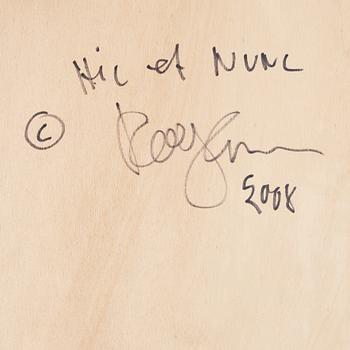 Hic et NUNC
©
2008